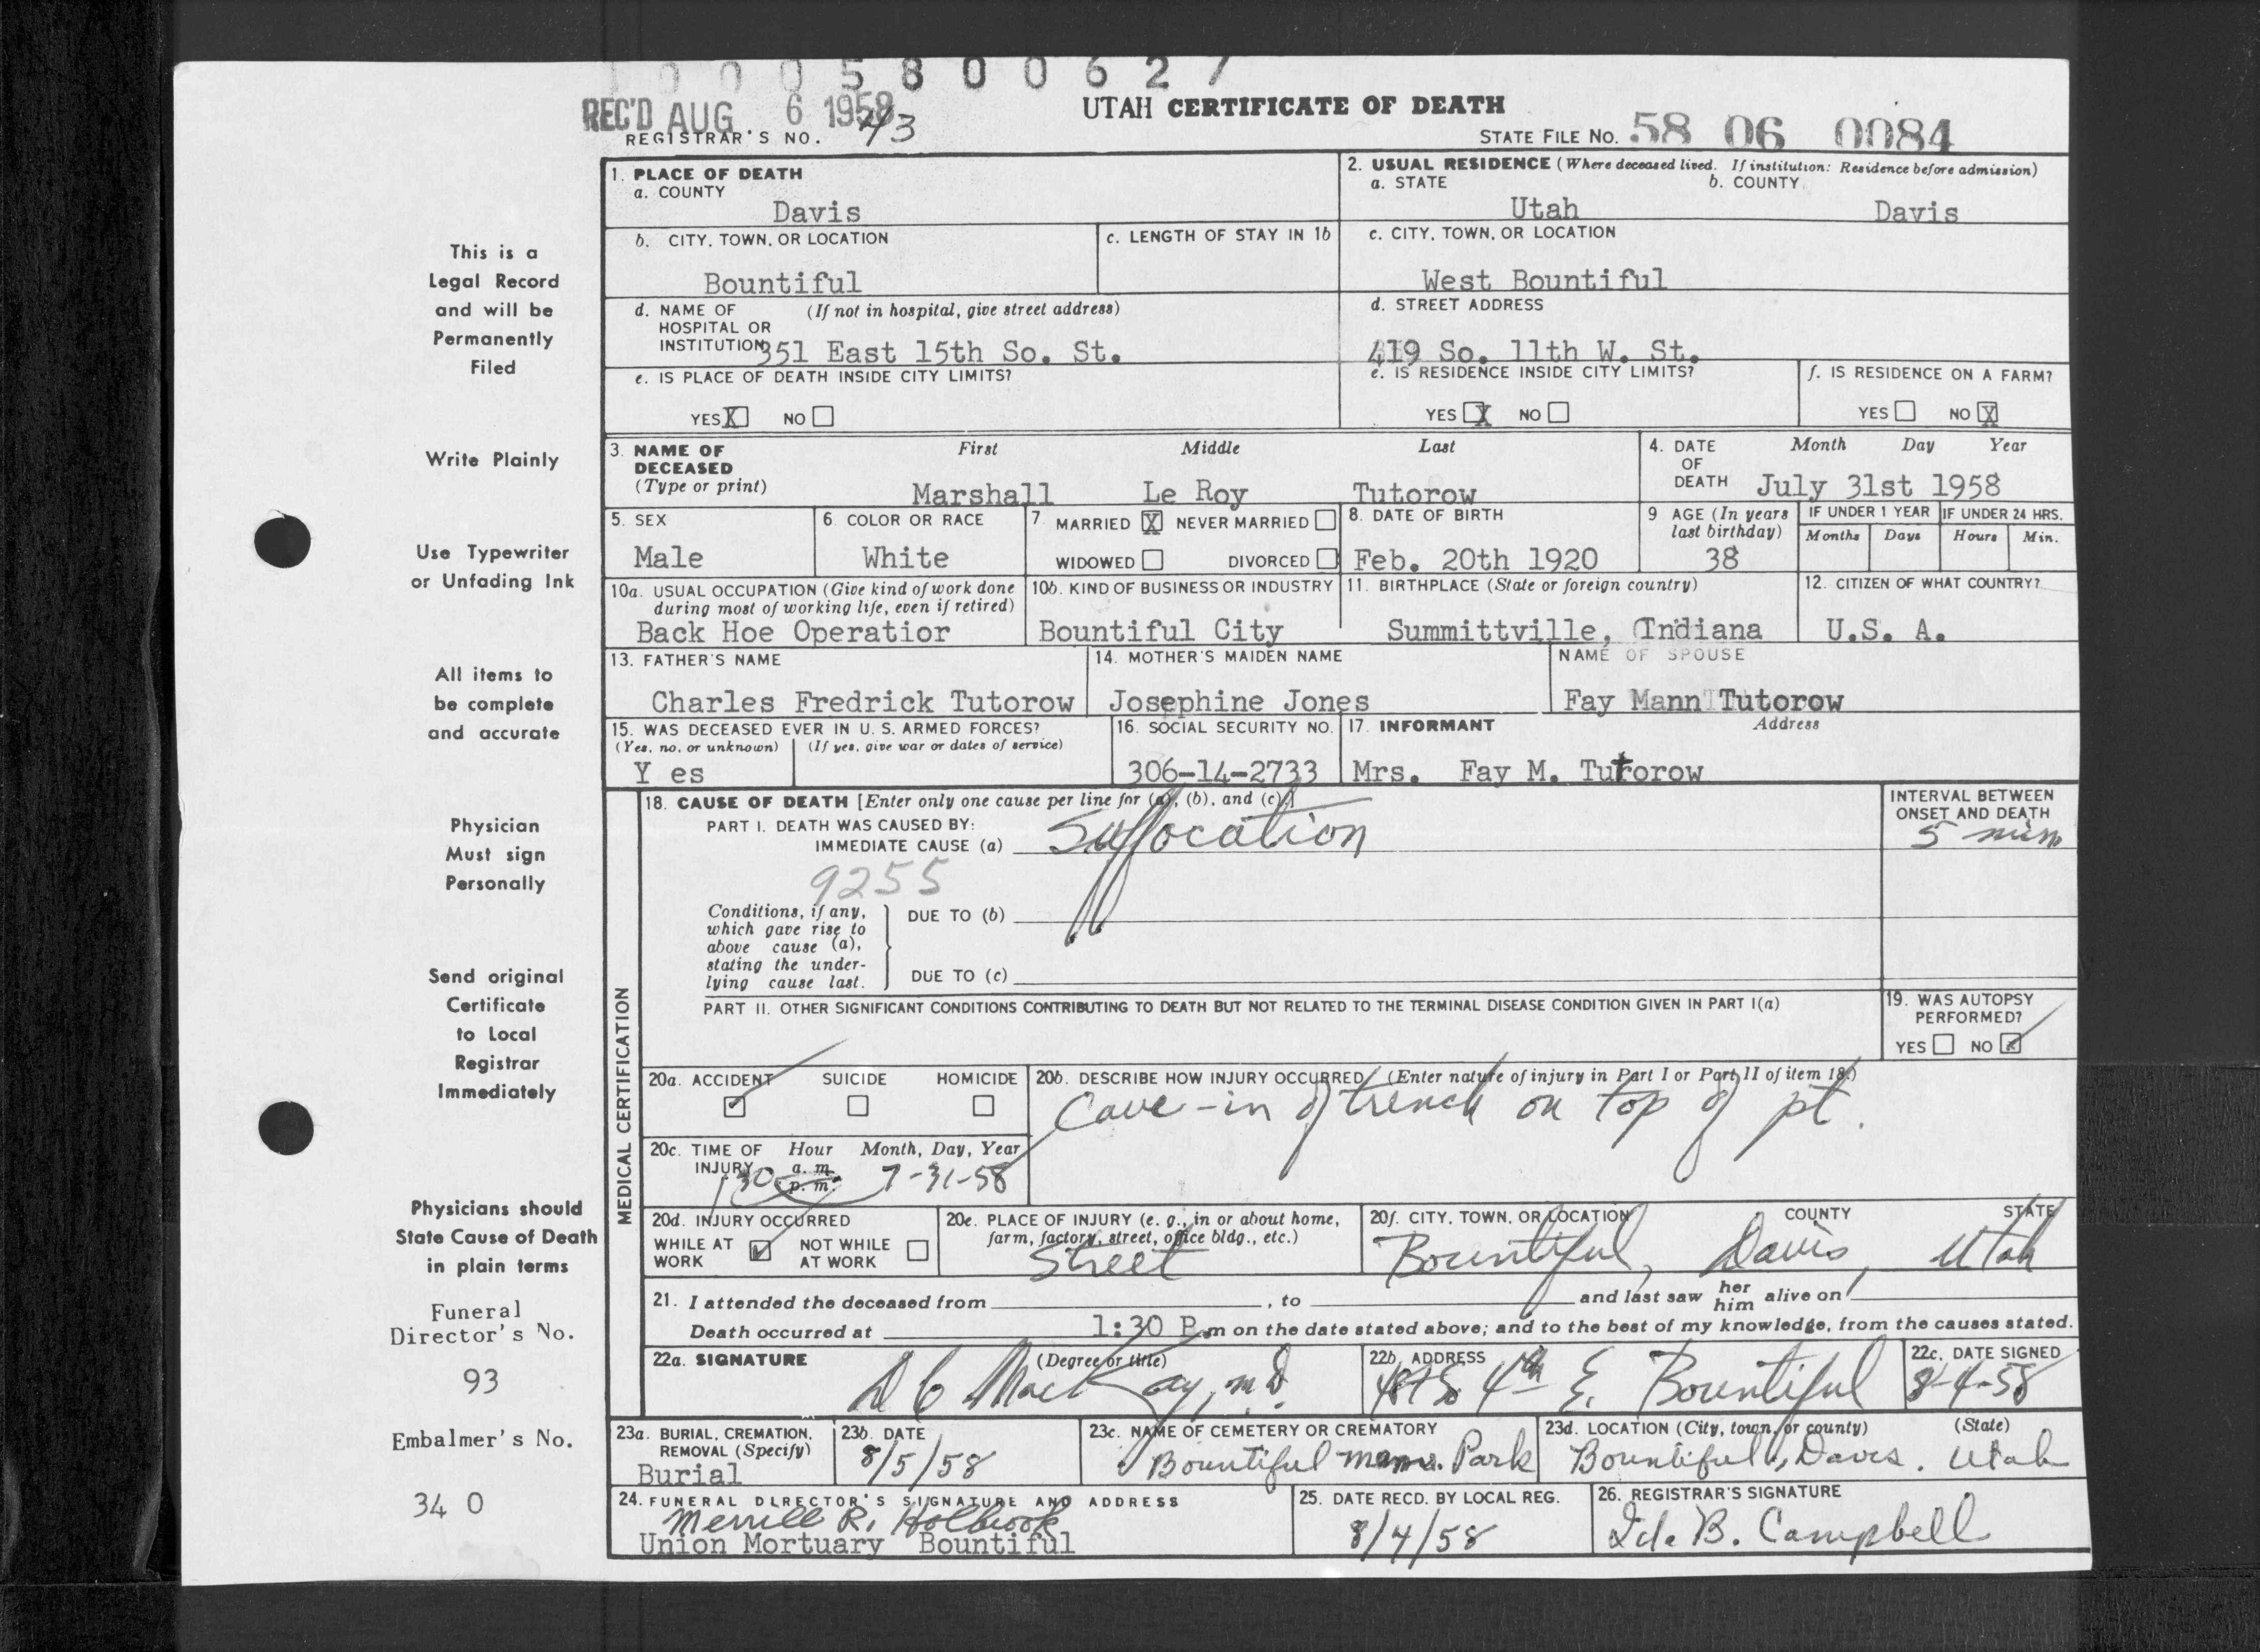 0 0 0 5 8 0 0 6 2 7
REC'D AUG 6 1958
UTAH CERTIFICATE OF DEATH
REGISTRAR'S NO. 43
STATE FILE NO. 58 06 0084
1. PLACE OF DEATH
a. COUNTY
Davis
2. USUAL RESIDENCE (Where deceased lived. If institution: Residence before admission)
a. STATE b. COUNTY
Utah Davis
b. CITY, TOWN, OR LOCATION
Bountiful
c. LENGTH OF STAY IN 1b
c. CITY, TOWN, OR LOCATION
West Bountiful
d. NAME OF (If not in hospital, give street address)
HOSPITAL OR
INSTITUTION 351 East 15th So. St.
d. STREET ADDRESS
419 So. 11th W. St.
e. IS PLACE OF DEATH INSIDE CITY LIMITS?
YES X NO
e. IS RESIDENCE INSIDE CITY LIMITS?
YES X NO
f. IS RESIDENCE ON A FARM?
YES NO X
3. NAME OF DECEASED (Type or print)
First Middle Last
Marshall Le Roy Tutorow
4. DATE OF DEATH
Month Day Year
July 31st 1958
5. SEX
Male
6. COLOR OR RACE
White
7. MARRIED X NEVER MARRIED
WIDOWED DIVORCED
8. DATE OF BIRTH
Feb. 20th 1920
9 AGE (In years last birthday)
38
IF UNDER 1 YEAR
Months Days
IF UNDER 24 HRS.
Hours Min.
10a. USUAL OCCUPATION (Give kind of work done
during most of working life, even if retired)
Back Hoe Operatior
10b. KIND OF BUSINESS OR INDUSTRY
Bountiful City
11. BIRTHPLACE (State or foreign country)
Summittville, Indiana
12. CITIZEN OF WHAT COUNTRY?
U.S. A.
13. FATHER'S NAME
Charles Fredrick Tutorow
14. MOTHER'S MAIDEN NAME
Josephine Jones
NAME OF SPOUSE
Fay Mann Tutorow
15. WAS DECEASED EVER IN U. S. ARMED FORCES?
(Yes, no, or unknown) (If yes, give war or dates of service)
Y es
16. SOCIAL SECURITY NO.
306-14-2733
17. INFORMANT Address
Mrs. Fay M. Tutorow
MEDICAL CERTIFICATION
18. CAUSE OF DEATH [Enter only one cause per line for (a), (b), and (c).]
PART I. DEATH WAS CAUSED BY:
IMMEDIATE CAUSE (a) Suffocation
INTERVAL BETWEEN
ONSET AND DEATH
5 min
9255
Conditions, if any,
which gave rise to
above cause (a),
stating the under-
lying cause last.
DUE TO (b)
DUE TO (c)
PART II. OTHER SIGNIFICANT CONDITIONS CONTRIBUTING TO DEATH BUT NOT RELATED TO THE TERMINAL DISEASE CONDITION GIVEN IN PART I(a)
19. WAS AUTOPSY
PERFORMED?
YES NO X
20a. ACCIDENT SUICIDE HOMICIDE
20b. DESCRIBE HOW INJURY OCCURRED (Enter nature of injury in Part I or Part II of item 18.)
Cave-in of trench on top of pt.
20c. TIME OF INJURY
Hour Month, Day, Year
130 a. m. p. m. 7-31-58
20d. INJURY OCCURRED
WHILE AT WORK NOT WHILE AT WORK
20e. PLACE OF INJURY (e. g., in or about home,
farm, factory, street, office bldg., etc.)
Street
20f. CITY, TOWN, OR LOCATION COUNTY STATE
Bountiful, Davis, Utah
21. I attended the deceased from , to and last saw her him alive on
Death occurred at 1:30 P.m on the date stated above; and to the best of my knowledge, from the causes stated.
22a. SIGNATURE (Degree or title)
D C MacKay, M.D.
22b. ADDRESS
487 So 4th E. Bountiful
22c. DATE SIGNED
8-4-58
23a. BURIAL, CREMATION,
REMOVAL (Specify)
Burial
23b. DATE
8/5/58
23c. NAME OF CEMETERY OR CREMATORY
Bountiful Mem. Park
23d. LOCATION (City, town, or county) (State)
Bountiful, Davis. Utah
24. FUNERAL DIRECTOR'S SIGNATURE AND ADDRESS
Merrill R. Holbrook
Union Mortuary Bountiful
25. DATE RECD. BY LOCAL REG.
8/4/58
26. REGISTRAR'S SIGNATURE
B. Campbell
This is a
Legal Record
and will be
Permanently
Filed
Write Plainly
Use Typewriter
or Unfading Ink
All items to
be complete
and accurate
Physician
Must sign
Personally
Send original
Certificate
to Local
Registrar
Immediately
Physicians should
State Cause of Death
in plain terms
Funeral
Director's No.
93
Embalmer's No.
34 0